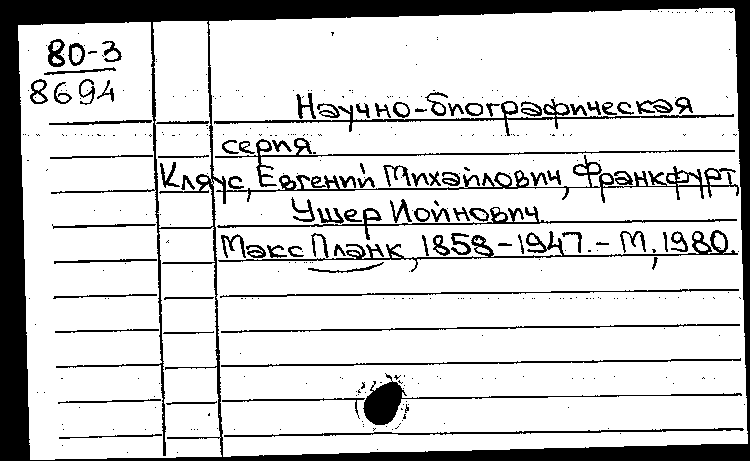 80-3
8694
Научно-биографическая
серия.
Кляус, Евгений Михайлович, Франкфурт,
Ушер Иойнович.
Макс Планк, 1858-1947.-М., 1980.